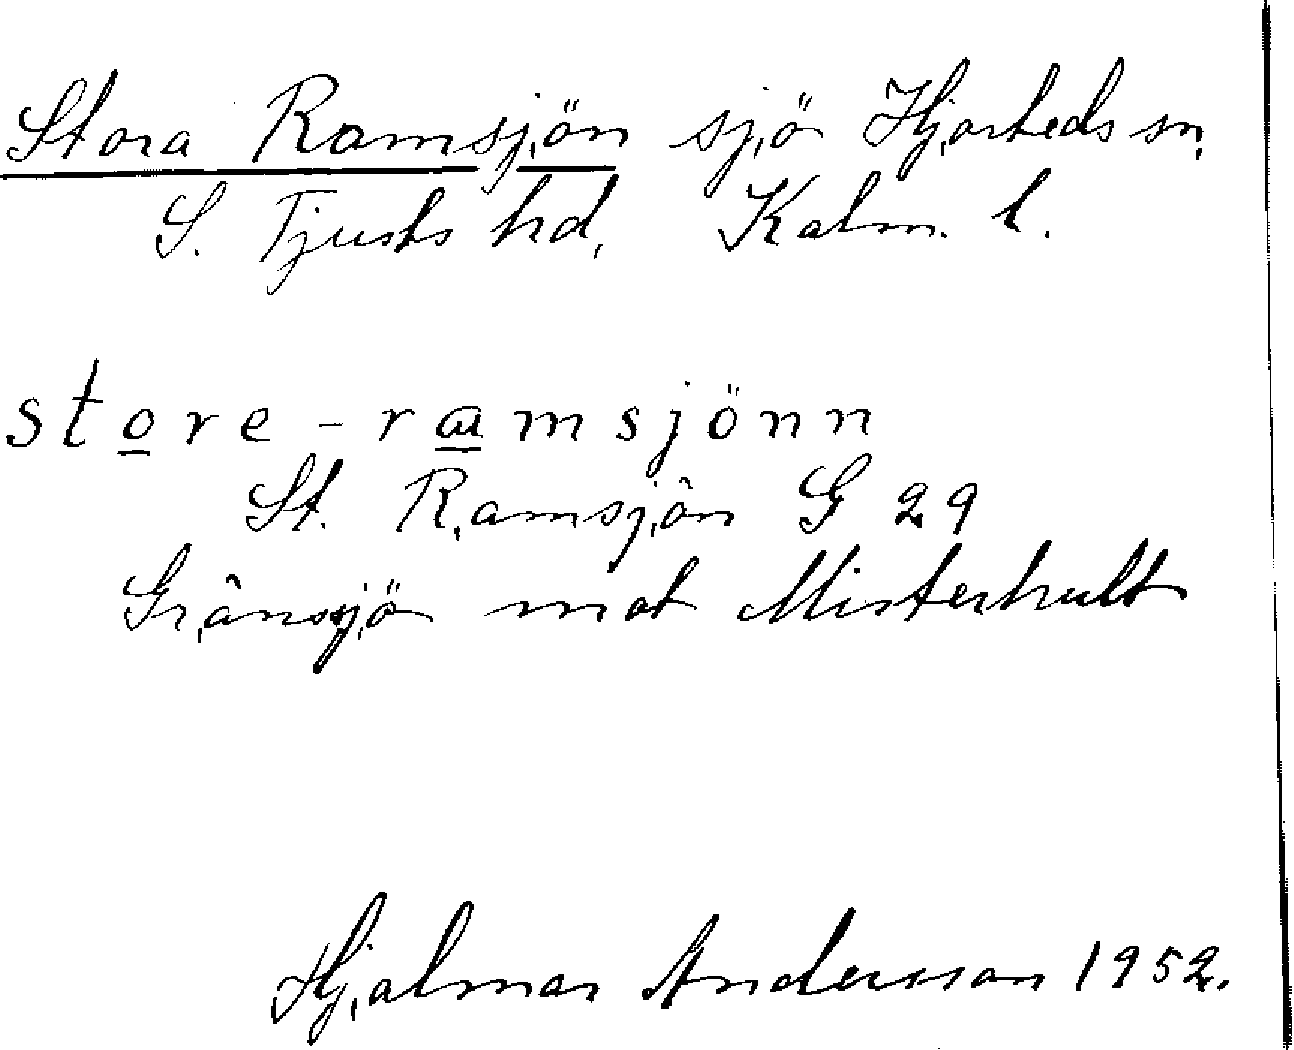 Stora Ramsjön sjö Hjorteds sn.
S. Tjusts hd. Kalm. l.
store-ramsjönn
St. Ramsjön G 29
Gränssjö mot Misterhult
Hjalmar Andersson 1952.